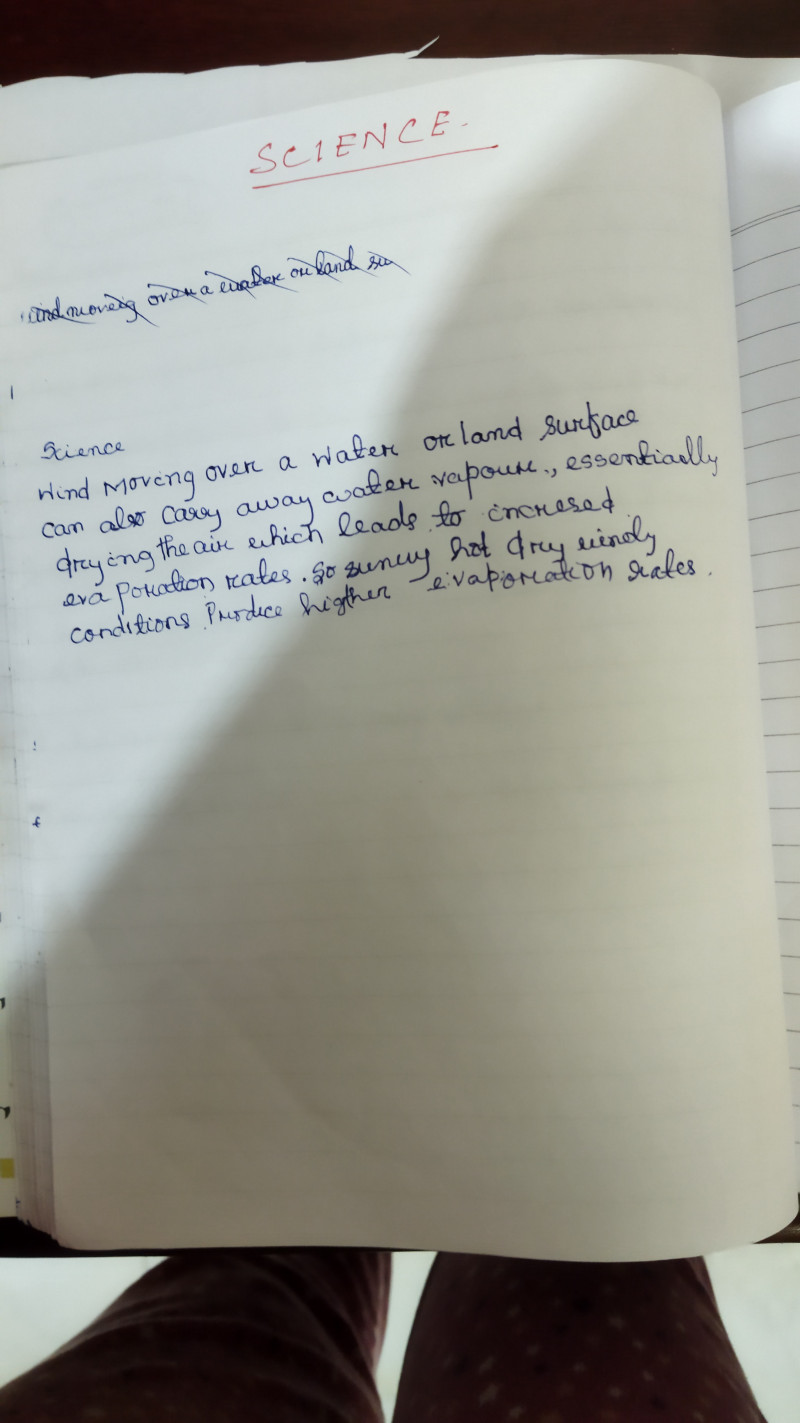 SCIENCE.
ind moveig over a water or land su
Science
Wind Moving over a Water or land surface
can also carry away water vapour., essentially
drying the air which leads to incresed
evaporation rates. So sunny hot dry windy
conditions Produce higther evaporation rates.